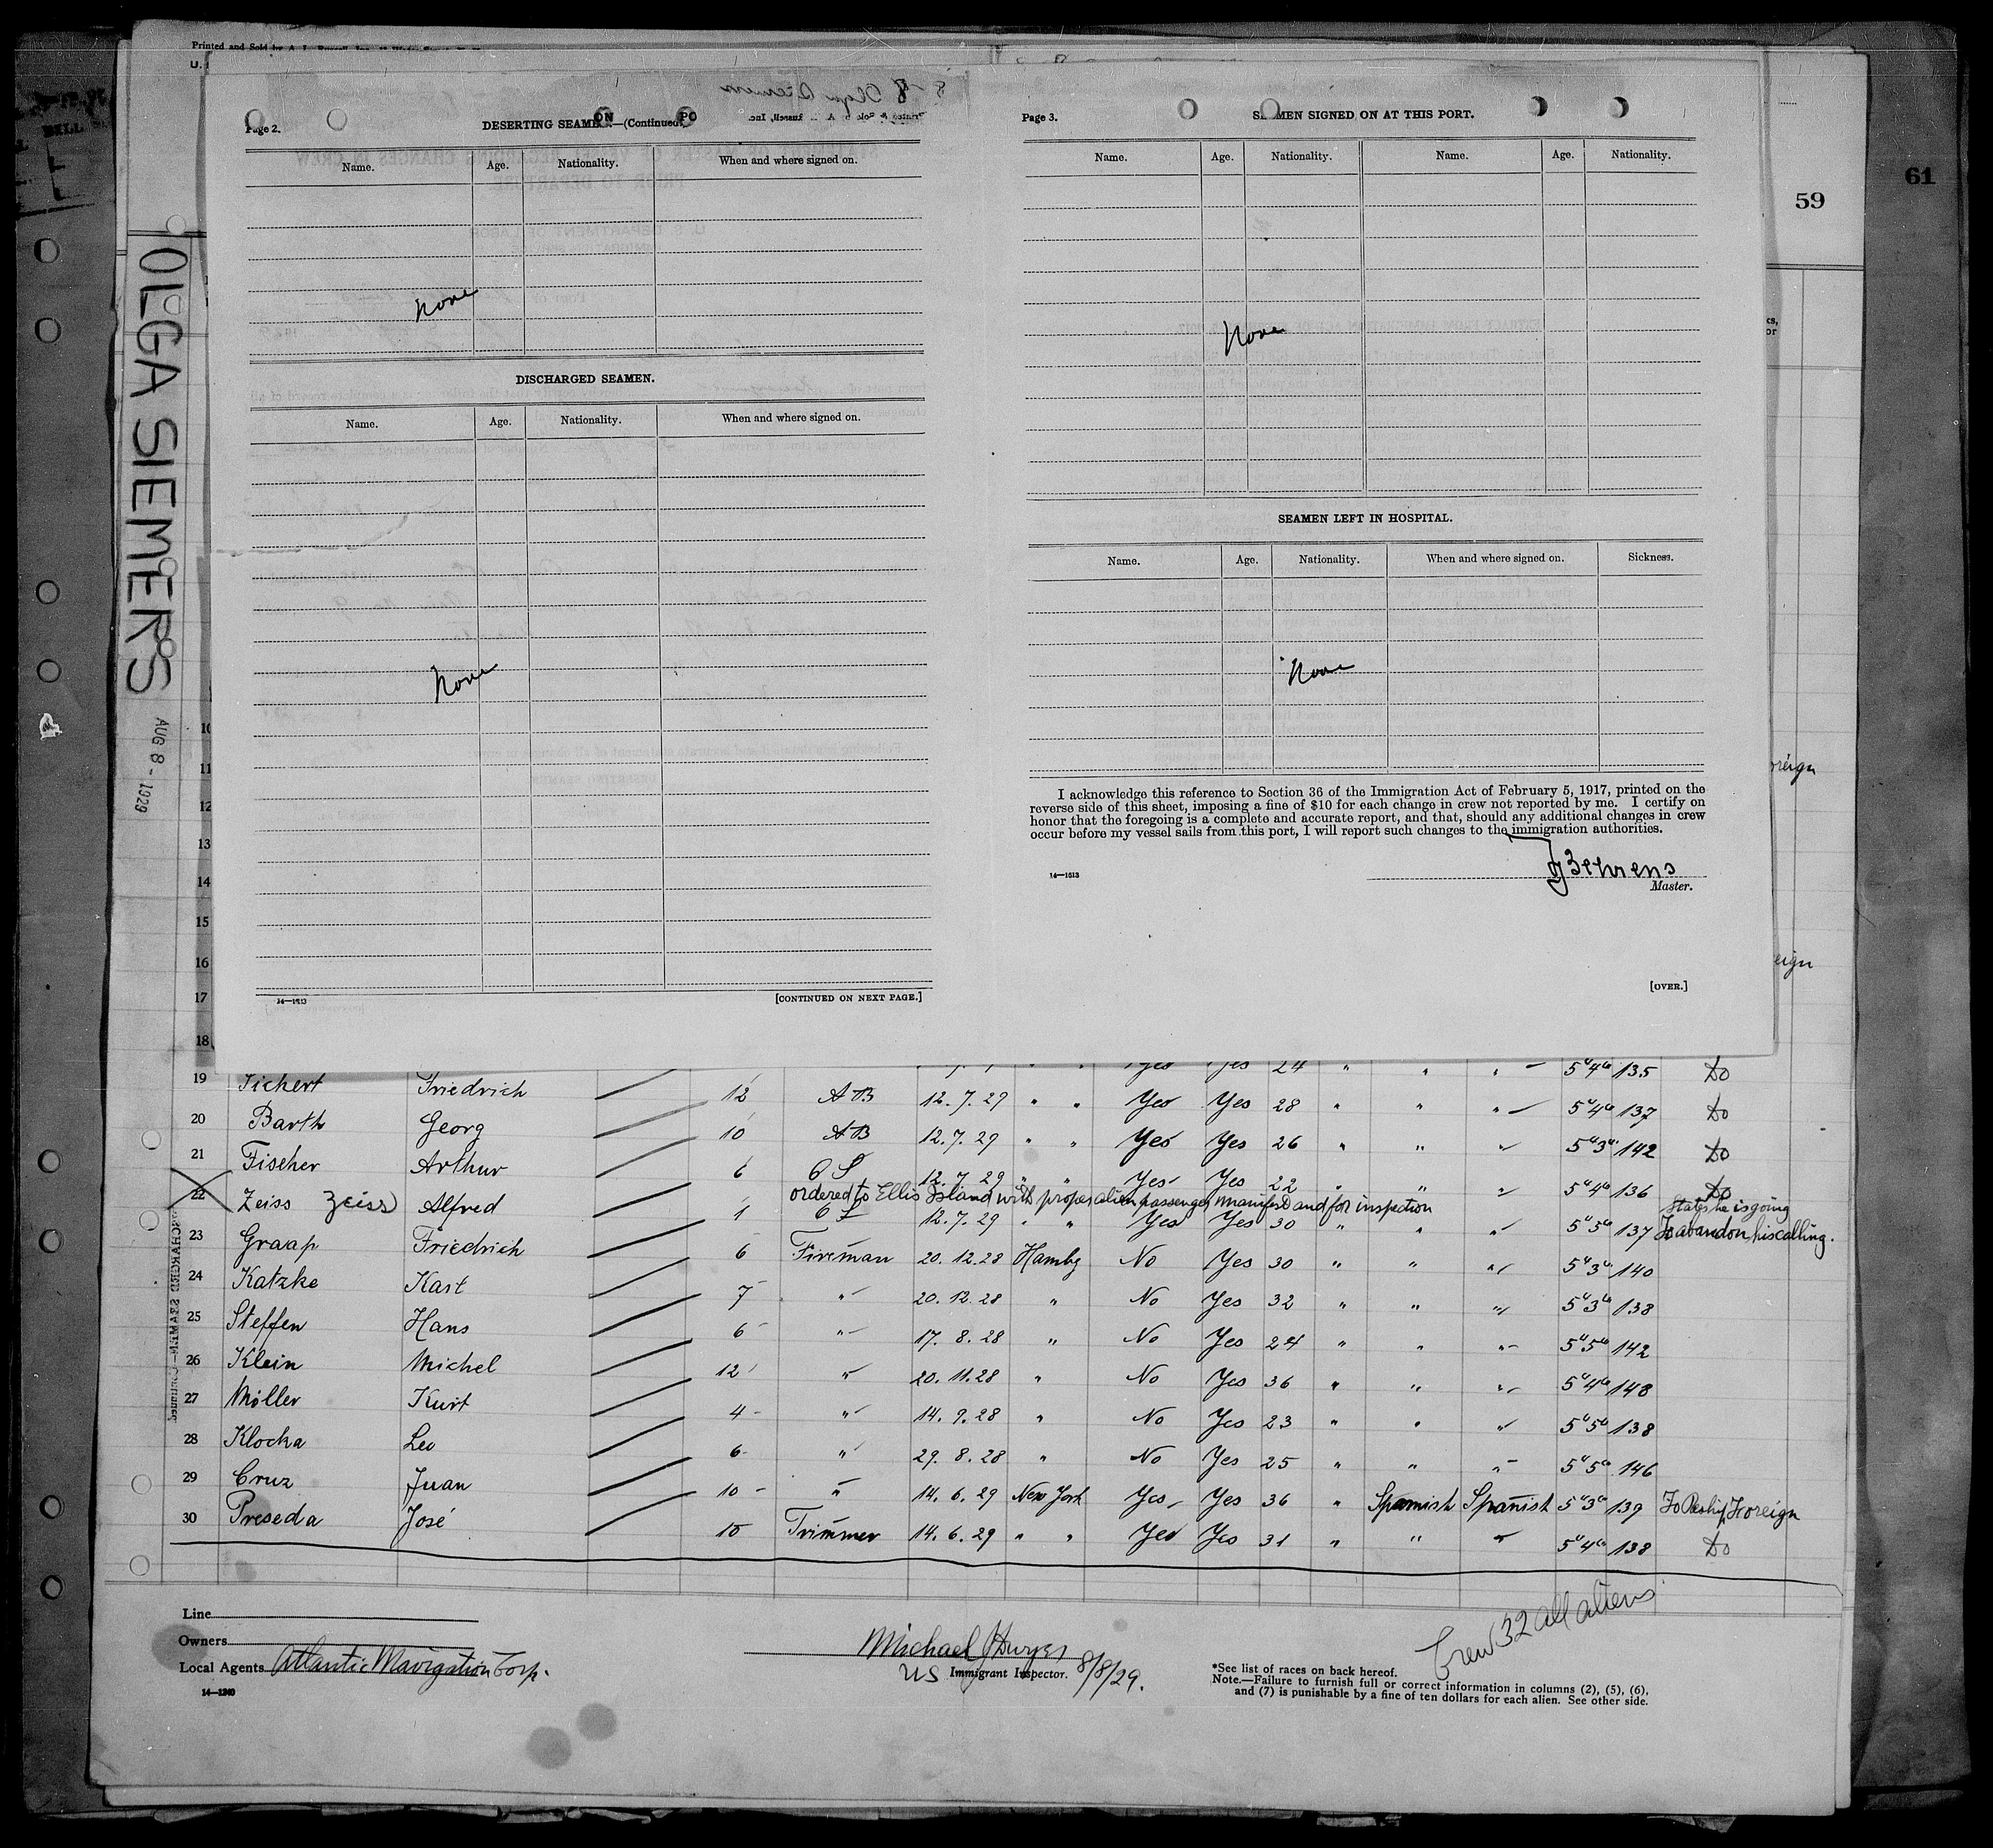 Printed and Sold by A
U.
61
59
OLGA SIEMERS
AUG 8 - 1929
Page 2.
DESERTING SEAMEN—(Continued)
Name. Age. Nationality. When and where signed on.
None
DISCHARGED SEAMEN.
Name. Age. Nationality. When and where signed on.
None
14—1613
[CONTINUED ON NEXT PAGE.]
Page 3.
SEAMEN SIGNED ON AT THIS PORT.
Name. Age. Nationality. Name. Age. Nationality.
None
SEAMEN LEFT IN HOSPITAL.
Name. Age. Nationality. When and where signed on. Sickness.
None
I acknowledge this reference to Section 36 of the Immigration Act of February 5, 1917, printed on the
reverse side of this sheet, imposing a fine of $10 for each change in crew not reported by me. I certify on
honor that the foregoing is a complete and accurate report, and that, should any additional changes in crew
occur before my vessel sails from this port, I will report such changes to the immigration authorities.
Behrens
Master.
14—1613
[OVER.]
10
11
12
13
14
15
16
17
18 Yes Yes 24 " " " 5"4" 135 Do
19 Tichert Friedrich 12 AB 12.7.29 " " Yes Yes 28 " " " 5"4" 137 Do
20 Barth Georg 10 AB 12.7.29 " " Yes Yes 26 " " " 5"3" 142 Do
21 Fischer Arthur 6 OS 12.7.29 " " Yes Yes 22 " " " 5"4" 136 Do
ordered to Ellis Island with proper alien passenger manifest and for inspection
States he is going
22 Zeiss Zeiss Alfred 1 OS 12.7.29 " " Yes Yes 30 " " " 5"5" 137 To abandon his calling.
23 Graap Friedrich 6 Fireman 20.12.28 Hambg No Yes 30 " " " 5"3" 140
24 Katzke Karl 7 " 20.12.28 " No Yes 32 " " " 5"3" 138
25 Steffen Hans 6 " 17.8.28 " No Yes 24 " " " 5"5" 142
26 Klein Michel 12 " 20.11.28 " No Yes 36 " " " 5"4" 148
27 Möller Kurt 4 " 14.9.28 " No Yes 23 " " " 5"5" 138
28 Klocka Leo 6 " 29.8.28 " No Yes 25 " " " 5"5" 146
29 Cruz Juan 10 " 14.6.29 New York Yes Yes 36 " Spanish Spanish 5"3" 139 To Reship Foreign
30 Preseda José 10 Trimmer 14.6.29 " " Yes Yes 31 " " " 5"4" 138 Do
Crew 32 all aliens
Line
Owners
Local Agents Atlantic Navigation Corp.
14—1240
Michael J Dwyer
US Immigrant Inspector. 8/8/29.
*See list of races on back hereof.
Note.—Failure to furnish full or correct information in columns (2), (5), (6),
and (7) is punishable by a fine of ten dollars for each alien. See other side.